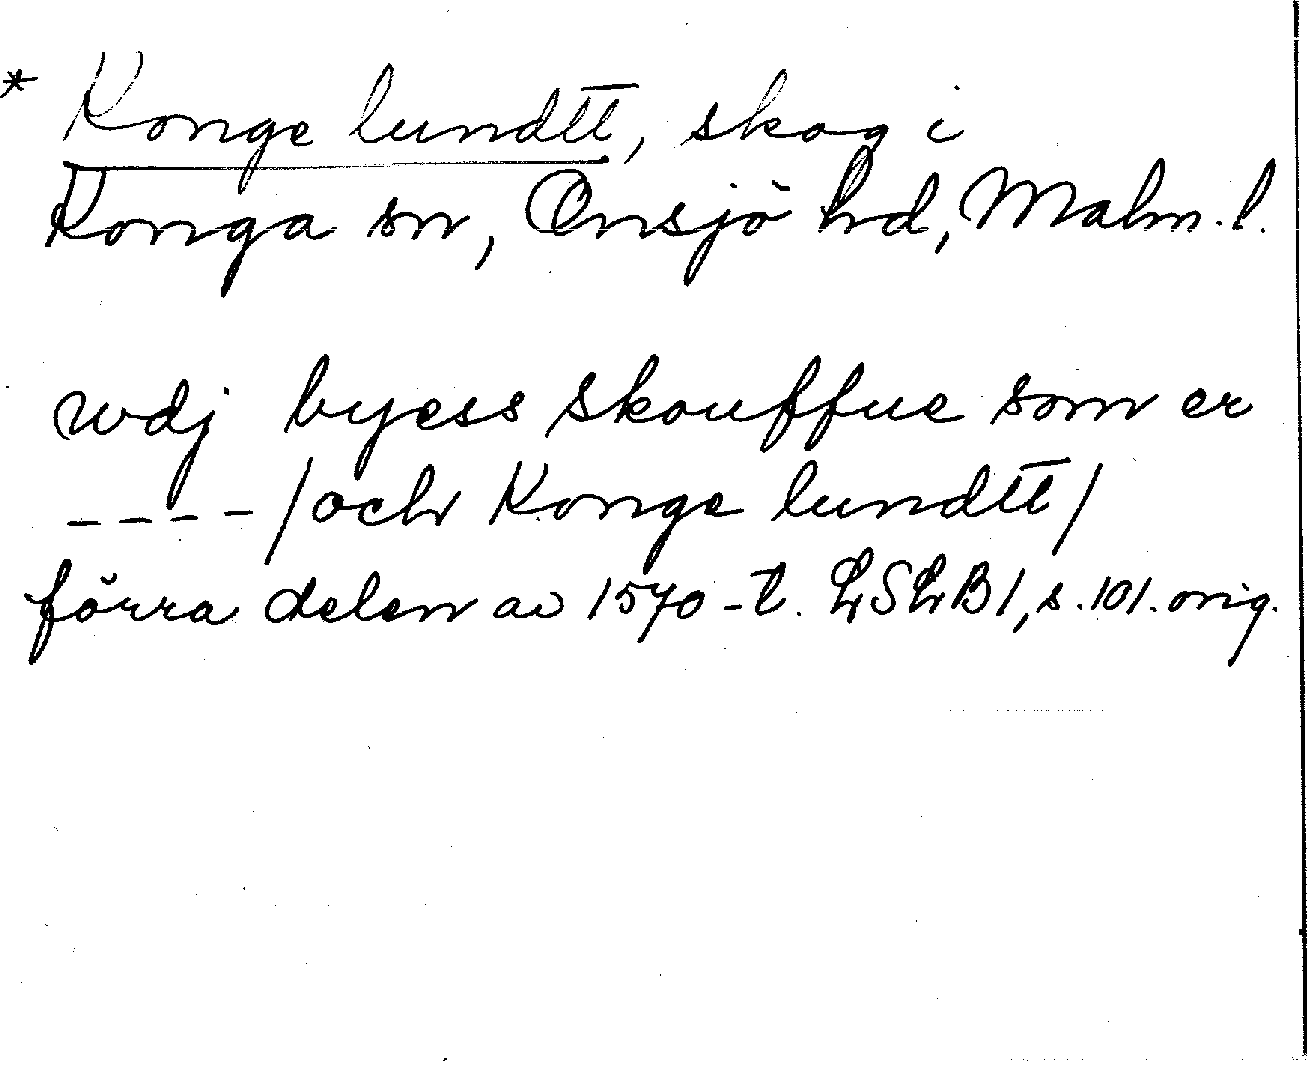 * Konge lundtt, skog i
Konga sn, Onsjö hd, Malm. l.
wdj byess skouffue som er
---- /och Konge lundtt/
förra delen av 1570-t. LSLB1, s. 101. orig.